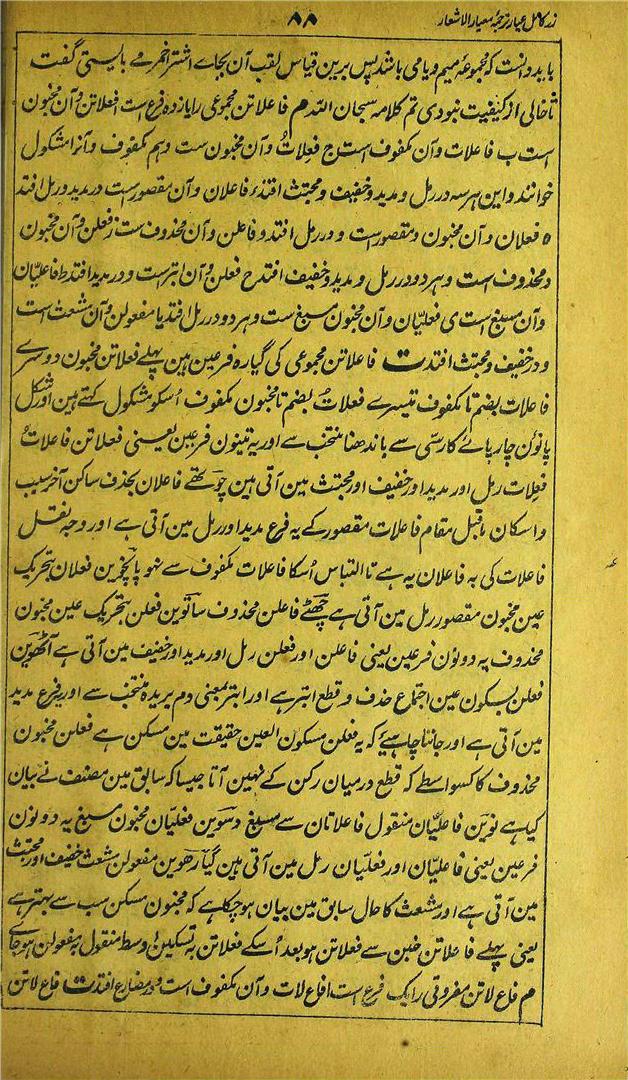 زر کامل عیار ترجمهٔ معیار الاشعار
۸۸
باید دانست که مجموعهٔ میم و یا می باشد پس برین قیاس لقب آن بجاے اشتر اخرم مے بایستی گفت
تا خالی از کیفیت نبودی تم کلامه سبحان الله م فاعلاتن مجموعی را یازده فرع است ا فعلاتن و آن مخبون
است ب فاعلات و آن مکفوف است ج فعلاتُ و آن مخبون ست و هم مکفوف و آنرا مشکول
خوانند و این هر سه در رمل و مدید و خفیف و مجتث افتند ء فاعلان و آن مقصور است در مدید و رمل افتد
ه فعلان و آن مخبون و مقصور است و در رمل افتد و فاعلن و آن محذوف ست ز فعلن و آن مخبون
و محذوف است و هر دو در رمل و مدید و خفیف افتد ح فعلن و آن ابتر ست و در مدید افتد ط فاعلیّان
و آن مسبغ است ی فعلیّان و آن مخبون مسبغ ست و هر دو در رمل افتد یا مفعولن و آن مشعث است
و در خفیف و مجتث افتد ت فاعلاتن مجموعی کی گیاره فرعین هین پہلے فعلاتن مخبون دوسرے
فاعلات بضم تا مکفوف تیسرے فعلاتُ بضم تا مخبون مکفوف اُسکو مشکول کہتے هین اور شکل
پانوٗن چارپائے کا رسّی سے باندھنا منتخب سے اور یہ تینون فرعین یعنی فعلاتن فاعلاتُ
فعلات رمل اور مدید اور خفیف اور مجتث مین آتی هین چوتھے فاعلان بحذف ساکن آخر سبب
و اسکان ماقبل مقام فاعلات مقصور کے یہ فرع مدید اور رمل مین آتی ہے اور وجہ نقل
فاعلات کی بہ فاعلان یہ ہے تا التباس اُسکا فاعلات مکفوف سے نہو پانچوین فعلان بتحریک
عین مخبون مقصور رمل مین آتی ہے چھٹے فاعلن محذوف ساتوین فعلن بتحریک عین مخبون
محذوف یہ دونون فرعین یعنی فاعلن اور فعلن رمل اور مدید اور خفیف مین آتی ہے آٹھوین
فعلن بسکون عین اجتماع حذف و قطع ابتر ہے اور ابتر بمعنی دم بریدہ منتخب سے اور یہ فرع مدید
مین آتی ہے اور جاننا چاہیئے کہ یہ فعلن مسکون العین حقیقت مین مسکن ہے فعلن مخبون
محذوف کا کسواسطے کہ قطع درمیان رکن کے نهین آتا جیسا کہ سابق مین مصنف نے بیان
کیا ہے نوین فاعلیّان منقول فاعلاتان سے مسبغ دسوین فعلیّان مخبون مسبغ یہ دونون
فرعین یعنی فاعلیّان اور فعلیّان رمل مین آتی هین گیارهوین مفعولن مشعث خفیف اور مجتث
مین آتی ہے اور مشعث کا حال سابق مین بیان ہو چکا ہے کہ مخبون مسکن سب سے بہتر ہے
یعنی پہلے فاعلاتن خبن سے فعلاتن ہو بعد اُسکے فعلاتن بہ تسکین اوسط منقول بمفعولن ہو جائے
م فاع لاتن مفروقی را یک فرع است ا فاع لات و آن مکفوف است و در مضارع افتد ت فاع لاتن